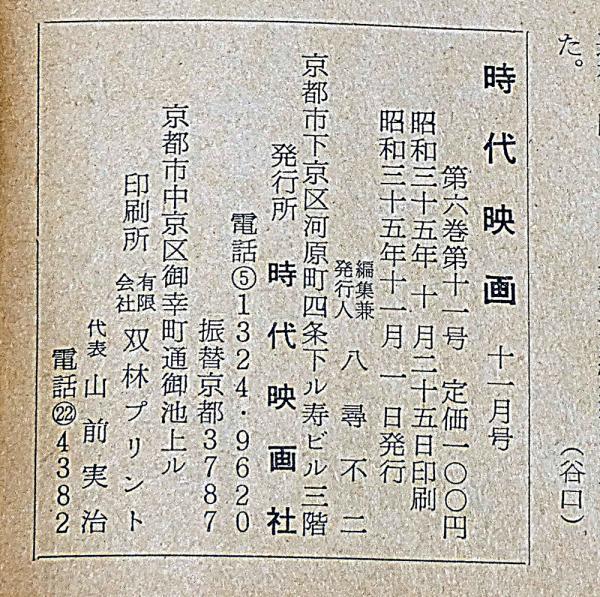 た。
（谷口）
時代映画　十一月号
第六巻第十一号　定価一〇〇円
昭和三十五年　十　月二十五日印刷
昭和三十五年十一月　一　日発行
編集兼
発行人　八尋不二
京都市下京区河原町四条下ル寿ビル三階
発行所　時代映画社
電話⑤1324・9620
振替京都3787
京都市中京区御幸町通御池上ル
印刷所　有限
会社　双林プリント
代表　山前実治
電話㉒4382